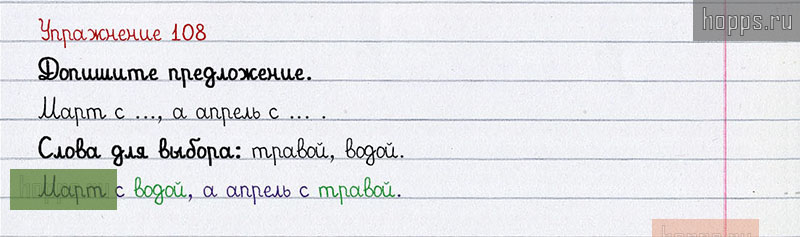 hopps.ru
Упражнение 108
Допишите предложение.
Март с ..., а апрель с ... .
Слова для выбора: травой, водой.
Март с водой, а апрель с травой.